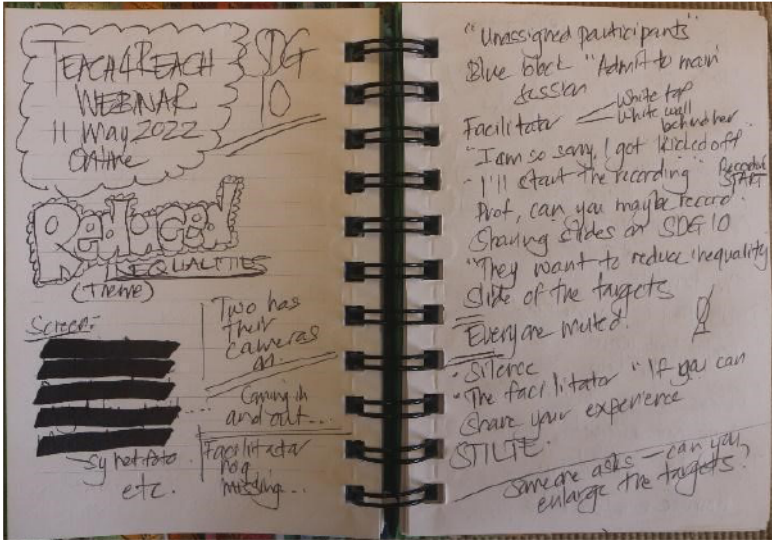 TEACH4REACH
WEBINAR
11 May 2022
Online
SDG
10
Reduced
INEQUALITIES
(Theme)
Screen:
sy het foto
etc.
Two has
their
cameras
on.
Coming in
and out...
Facilitator
nog
missing...
"Unassigned participants"
Blue block "Admit to main
session
Facilitator
White top
White wall
behind her
"I am so sorry, I got kicked off
"I'll start the recording"
START
Prof, can you maybe record.
Sharing slides on SDG 10
"They want to reduce inequality
Slide of the targets
Everyone muted.
Silence
"The facilitator "If you can
share your experience
STILTE.
Someone asks – can you
enlarge the targets?